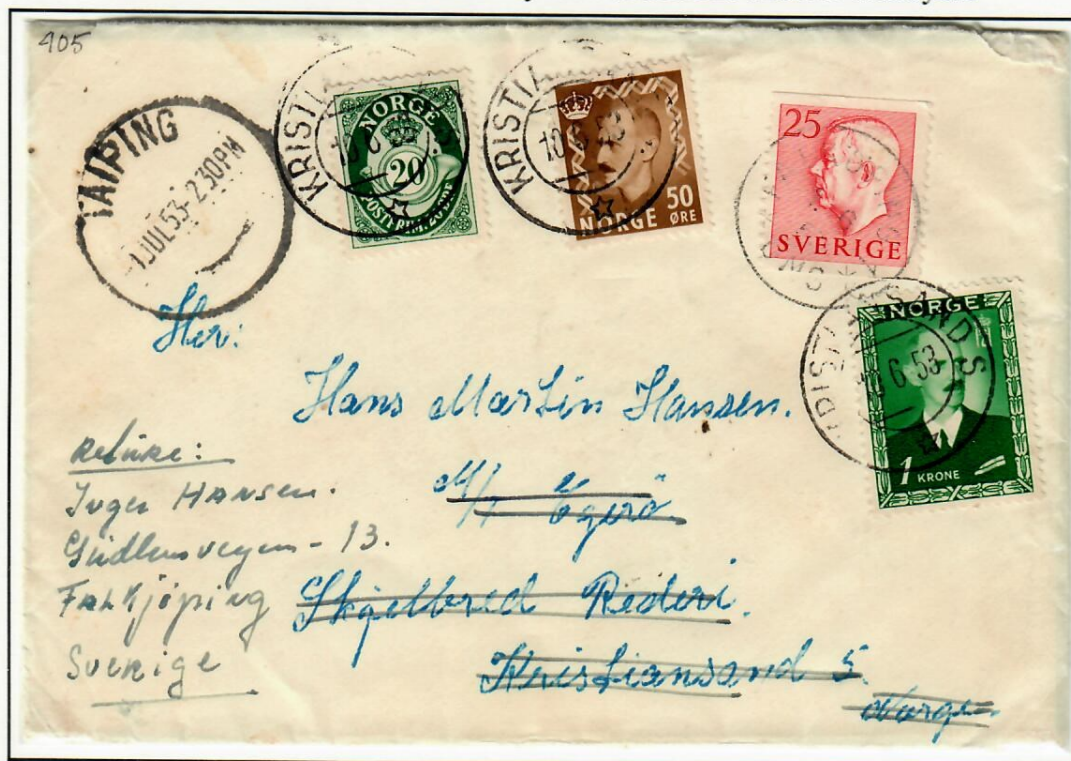 405
TAIPING
1 JUL 53-2 30PM
KRISTIA
10 6 53
NORGE
20
KRISTIA
10 6 53
50
NORGE ØRE
25
SVERIGE
KRISTIANSAND S
6 53
NORGE
1 KRONE
Her:
Hans Martin Hansen.
M/T Egerö
Skjelbred Rederi.
Kristiansand S.
Norge
Reture:
Inger HANSEN.
13.
Falkjöping
Sverige